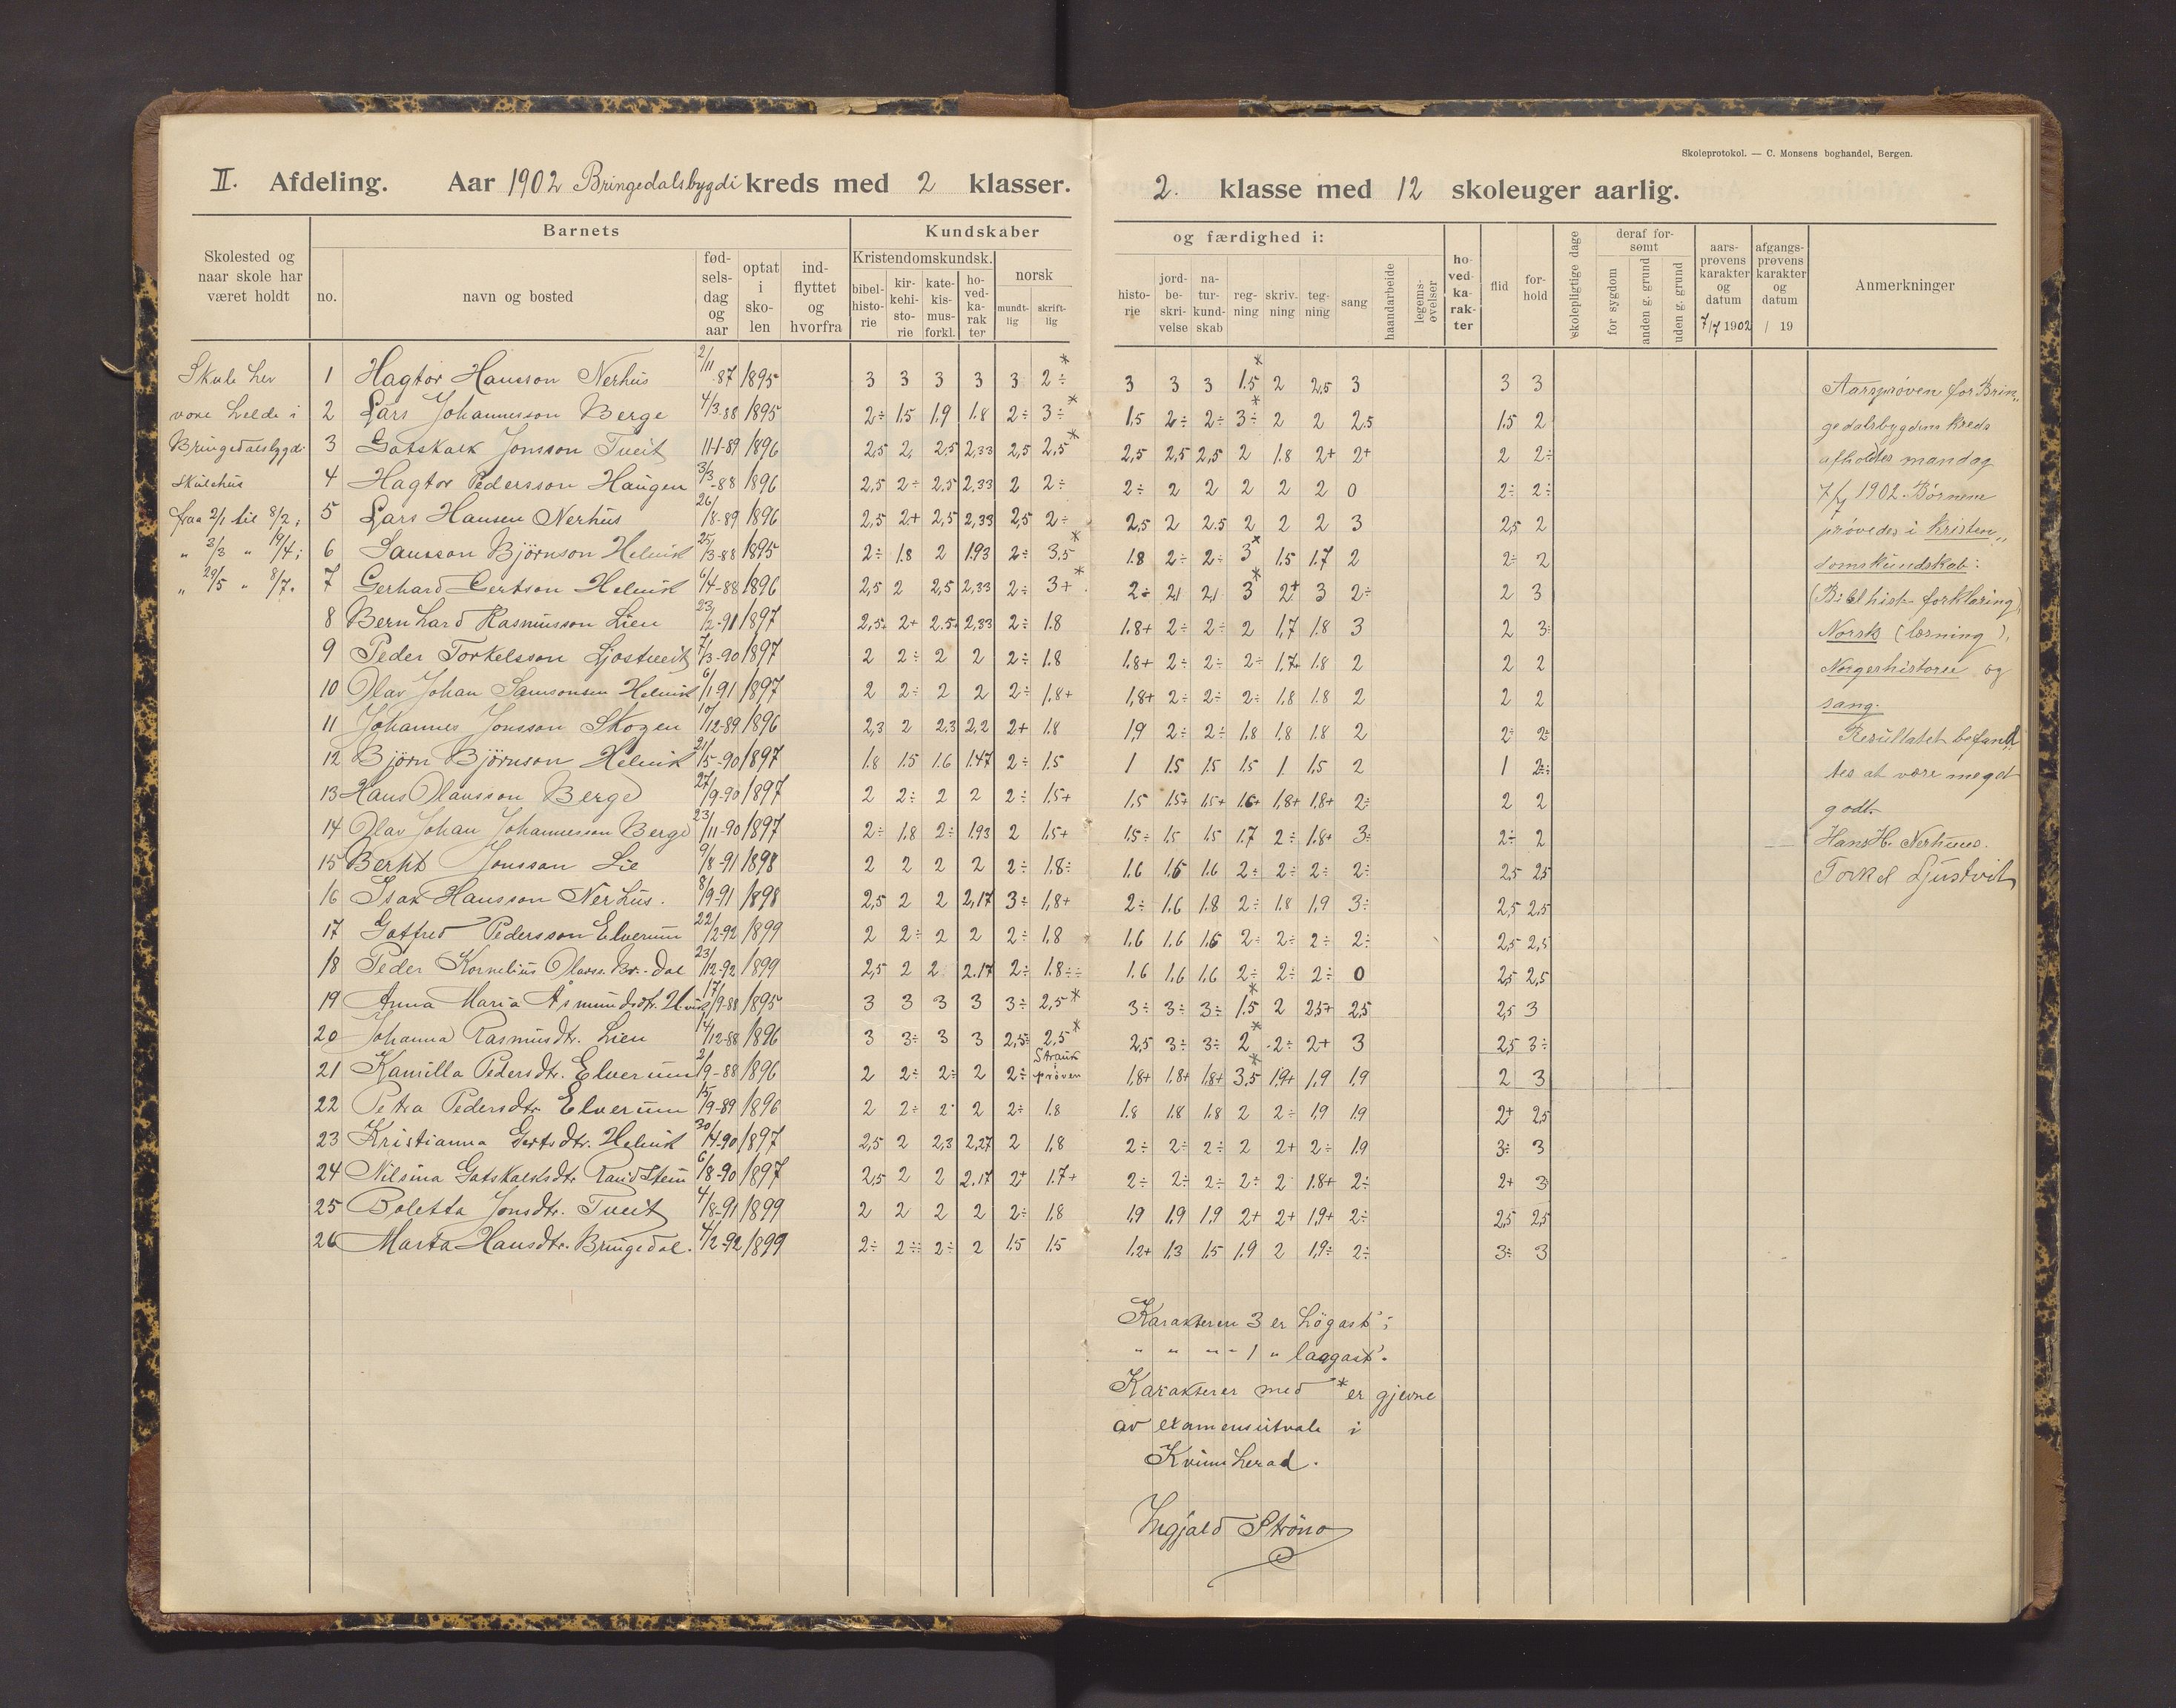 Skoleprotokol. — C. Monsens boghandel, Bergen.
II. Afdeling. Aar 1902 Bringedalsbygdi kreds med 2 klasser.
2. klasse med 12 skoleuger aarlig.
Skolested og naar skole har været holdt
Barnets
no.
navn og bosted
fød-sels-dag og aar
optat i sko-len
ind-flyttet og hvorfra
Kundskaber
Kristendomskundsk.
bibel-histo-rie
kir-kehi-sto-rie
kate-kis-mus-forkl.
ho-ved-ka-rak ter
norsk
mundt-lig
skrift-lig
og færdighed i:
histo-rie
jord-be-skri-velse
na-tur-kund-skab
reg-ning
skriv-ning
teg-ning
sang
haandarbeide
legems-øvelser
ho-ved-ka-rak-ter
flid
for-hold
skolepligtige dage
deraf for-sømt
for sygdom
anden g. grund
uden g. grund
aars-prøvens karakter og datum
7/7 1902
afgangs-prøvens karakter og datum
/ 19
Anmerkninger
Skule hev
vore helde i
Bringedalsbygdi
skulehus
fraa 2/1 til 8/2;
" 3/3 " 19/4;
" 29/5 " 8/7.
1 Hagtor Hansson Nerhus 2/11 87 1895 3 3 3 3 3 2÷* 3 3 3 1.5* 2 2,5 3 3 3
2 Lars Johannesson Berge 4/3-88 1895 2÷ 1.5 1.9 1.8 2÷ 3÷* 1.5 2÷ 2÷ 3÷* 2 2 2.5 1.5 2
3 Gotskalk Jonsson Tveit 11-1-89 1896 2,5 2, 2,5 2,33 2,5 2,5* 2,5 2,5 2,5 2 1.8 2+ 2+ 2 2÷
4 Hagtor Pedersson Haugen 3/3-88 1896 2,5 2÷ 2.5 2.33 2 2÷ 2÷ 2 2 2 2 2 0 2÷ 2÷
5 Lars Hansen Nerhus 26/8-89 1896 2,5 2+ 2,5 2,33 2,5 2÷ 2,5 2 2.5 2 2 2 3 2,5 2
6 Samson Björnson Helvik 25/3-88 1895 2÷ 1.8 2 1.93 2÷ 3.5* 1.8 2÷ 2÷ 3* 1.5 1.7 2 2÷ 2
7 Gerhard Gertson Helvik 6/4-88 1896 2,5 2 2,5 2,33 2÷ 3+* 2÷ 2,1 2,1 3* 2+ 3 2÷ 2 3
8 Bernhard Rasmusson Lien 23/2-91 1897 2,5+ 2+ 2.5+ 2,33 2÷ 1.8 1.8+ 2÷ 2÷ 2 1,7 1.8 3 2 3÷
9 Peder Torkelsson Ljostveit 7/3-90 1897 2 2÷ 2 2 2÷ 1.8 1.8+ 2÷ 2÷ 2÷ 1.7+ 1.8 2 2 2
10 Olav Johan Samsonsen Helvik 6/1-91 1897 2 2÷ 2 2 2÷ 1.8+ 1,8+ 2÷ 2÷ 2÷ 1.8 1.8 2 2 2
11 Johannes Jonsson Skogen 10/12-89 1896 2,3 2 2.3 2,2 2+ 1.8 1,9 2÷ 2÷ 1.8 1.8 1.8 2 2÷ 2÷
12 Björn Björnson Helvik 21/5-90 1897 1.8 1.5 1.6 1.47 2÷ 1.5 1 1.5 1.5 1.5 1 1,5 2 1 2÷
13 Hans Olausson Berge 27/9-90 1897 2 2÷ 2 2 2÷ 1.5+ 1.5 1.5+ 1.5+ 1.6+ 1,8+ 1,8+ 2÷ 2 2
14 Olav Johan Johannesson Berge 23/11-90 1897 2÷ 1.8 2÷ 1.93 2 1.5+ 1.5÷ 1.5 1.5 1.7 2÷ 1.8+ 3÷ 2÷ 2
15 Bernt Jonsson Lie 9/8-91 1898 2 2 2 2 2÷ 1.8÷ 1.6 1.6 1.6 2÷ 2÷ 2÷ 2÷ 2,5 2,5
16 Isak Hansson Nerhus. 8/9-91 1898 2,5 2 2 2,17 3÷ 1,8+ 2÷ 1.6 1.8 2÷ 1.8 1.9 3÷ 2,5 2,5
17 Gotfred Pedersson Elverum 22/2-92 1899 2 2÷ 2 2 2÷ 1.8 1.6 1.6 1.6 2÷ 2÷ 2÷ 2÷ 2,5 2,5
18 Peder Kornelius Olavss. Br.-dal 23/12-92 1899 2,5 2 2 2.17 2÷ 1.8÷÷ 1.6 1.6 1.6 2÷ 2÷ 2÷ 0 2,5 2,5
19 Anna Maria Åsmundsdt. H.vik 17/9-88 1895 3 3 3 3 3÷ 2,5* 3÷ 3÷ 3÷ 1.5* 2 2,5+ 2,5 2,5 3
20 Johanna Rasmusdtr. Lien 14/12-88 1896 3 3÷ 3 3 2,5÷ 2,5* 2,5 3÷ 3÷ 2* 2÷ 2+ 3 2,5 3÷
21 Kamilla Pedersdtr. Elverum 2/9-88 1896 2 2÷ 2÷ 2 2÷ Strauk prøven 1,8+ 1,8+ 1,8+ 3,5* 1,9+ 1,9 1,9 2 3
22 Petra Pedersdtr. Elverum 15/9-89 1896 2 2÷ 2 2 2÷ 1.8 1.8 1.8 1.8 2 2÷ 1.9 1.9 2+ 2,5
23 Kristianna Gertsdtr. Helvik 30/4-90 1897 2,5 2 2,3 2,27 2 1,8 2÷ 2÷ 2÷ 2 2+ 2÷ 1.9 3÷ 3
24 Nilsina Gotskalksdtr. 6/8-90 1897 2,5 2 2 2.17 2+ 1.7+ 2÷ 2÷ 2÷ 2÷ 2 1.8+ 2÷ 2+ 3
25 Boletta Jonsdtr. Tveit 4/8-91 1899 2 2 2 2 2÷ 1.8 1,9 1,9 1,9 2+ 2+ 1,9+ 2÷ 2,5 2,5
26 Marta Hansdtr. Bringedal. 4/2-92 1899 2÷ 2÷ 2÷ 2 1.5 1.5 1.2+ 1.3 1.5 1.9 2 1,9÷ 2÷ 3÷ 3
Karakteren 3 er högast;
" " " 1 " laagast.
Karakterer med * er gjevne
av examensutvale i
Kvinnherad.
Ingjald Strönø
Aarsprøven for Brin„
gedalsbygdens kreds
afholdtes mandag
7/7 1902. Børnene
prøvedes i Kristen„
domskundskab:
(Bibelhist. forklaring),
Norsk (læsning),
Norgeshistorie og
sang.
Resultatet befand„
tes at være meget
godt.
Hans H. Nerhuus.
Torkel Ljustvit